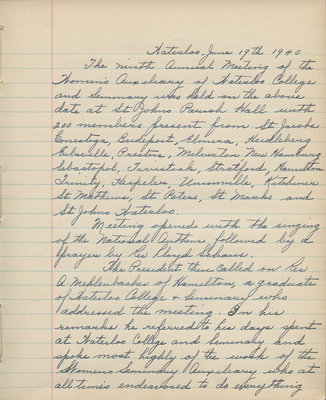 Waterloo, June 19th 1940
The ninth Annual Meeting of the
Women's Auxileary of Waterloo College
and Seminary was held on the above
date at St Johns Parish Hall with
200 members present from St Jacobs
Conestoga, Bridgeport, Elmira, Heidleburg
Preston, Milverton New Hamburg
Sebastopol, Tavistock, Stratford, Hamilton
Trinity, Hespeler, Unionville, Kitchener
St Mathews, St Peters, St Marks and
St Johns Waterloo.
Meeting opened with the singing
of the National Anthem, followed by a
prayer by Rev Lloyd Schaus.
The President then called on Rev
A. Mehlenbacher of Hamilton, a graduate
of Waterloo College & Seminary who
addressed the meeting. In his
remarks he referred to his days spent
at Waterloo College and Seminary and
spoke most highly of the work of the
Womens Seminary Auxileary who at
all times endeavored to do everything